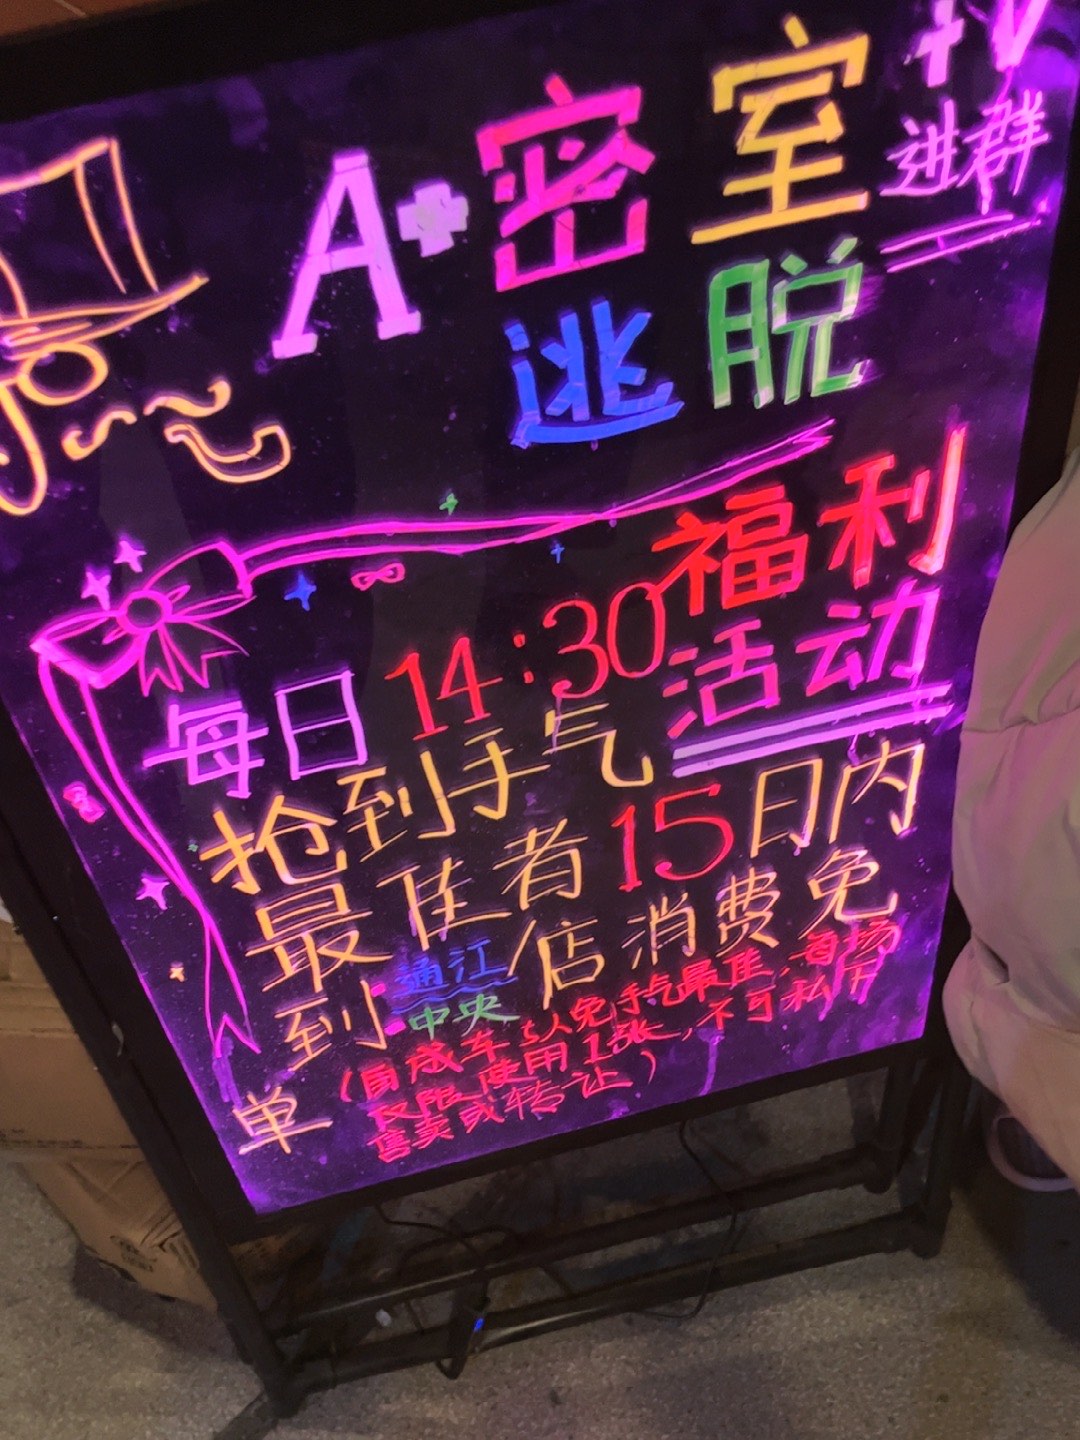 A+密室
+V
进群
逃脱
每日14:30福利
活动
抢到手气
最佳者15日内
到通江中央店消费免
单
(自成车 5人免手气最佳,每场
仅限使用1张,不可私用
售卖或转让)